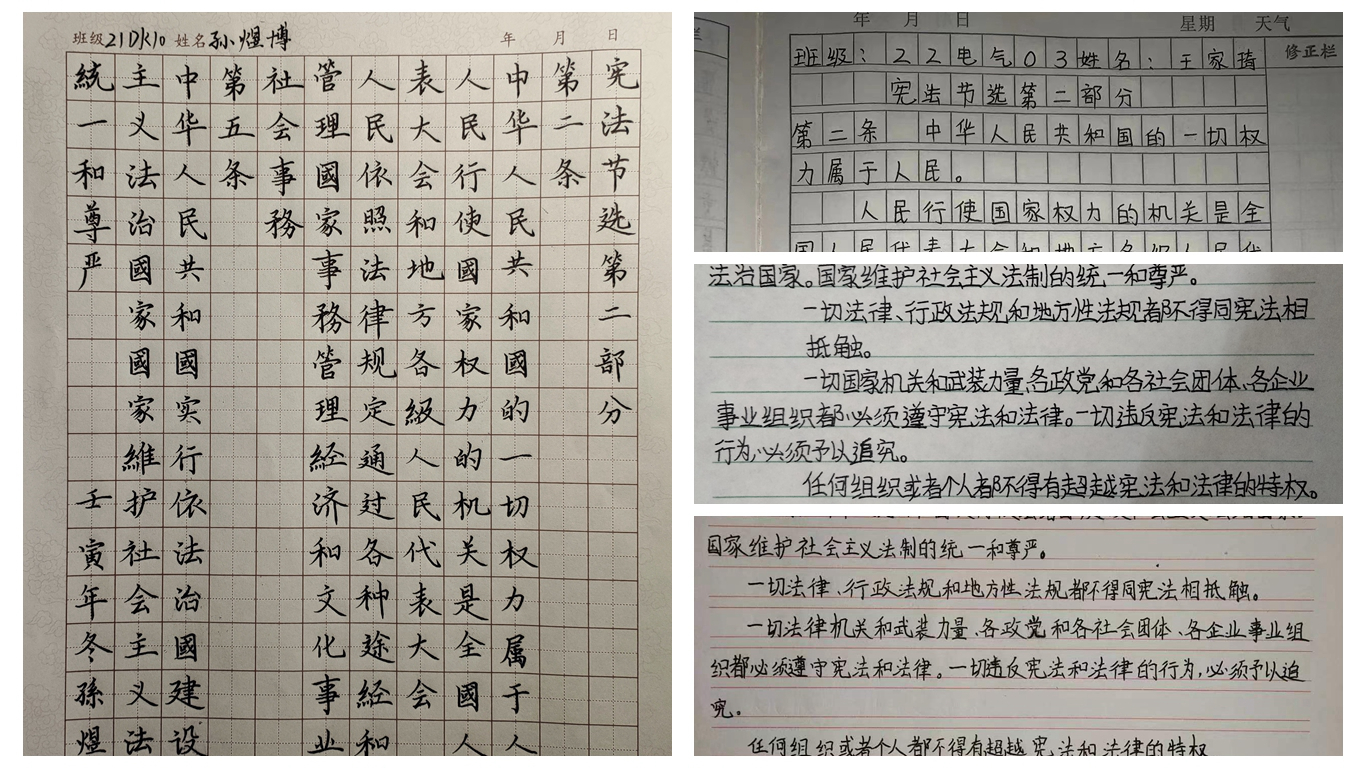 班级21DK10 姓名孙煜博 年 月 日
宪法节选第二部分
第二条
中华人民共和國的一切权力属于人
人民行使國家权力的机关是全國人
表大会和地方各級人民代表大会
人民依照法律规定通过各种途经和
管理國家事務管理经济和文化事业
社会事務
第五条
中华人民共和國实行依法治國建设
主义法治國家國家維护社会主义法
統一和尊严 壬寅年冬孫煜
年 月 日 星期 天气
修正栏
班级：22电气03姓名：王家琦
宪法节选第二部分
第二条 中华人民共和国的一切权
力属于人民。
人民行使国家权力的机关是全
国人民代表大会和地方各级人民代
法治国家。国家维护社会主义法制的统一和尊严。
一切法律、行政法规和地方性法规都不得同宪法相
抵触。
一切国家机关和武装力量、各政党和各社会团体、各企业
事业组织都必须遵守宪法和法律。一切违反宪法和法律的
行为,必须予以追究。
任何组织或者个人都不得有超越宪法和法律的特权。
国家维护社会主义法制的统一和尊严。
一切法律、行政法规和地方性法规都不得同宪法相抵触。
一切法律机关和武装力量、各政党和各社会团体、各企业事业组
织都必须遵守宪法和法律。一切违反宪法和法律的行为,必须予以追
究。
任何组织或者个人都不得有超越宪法和法律的特权